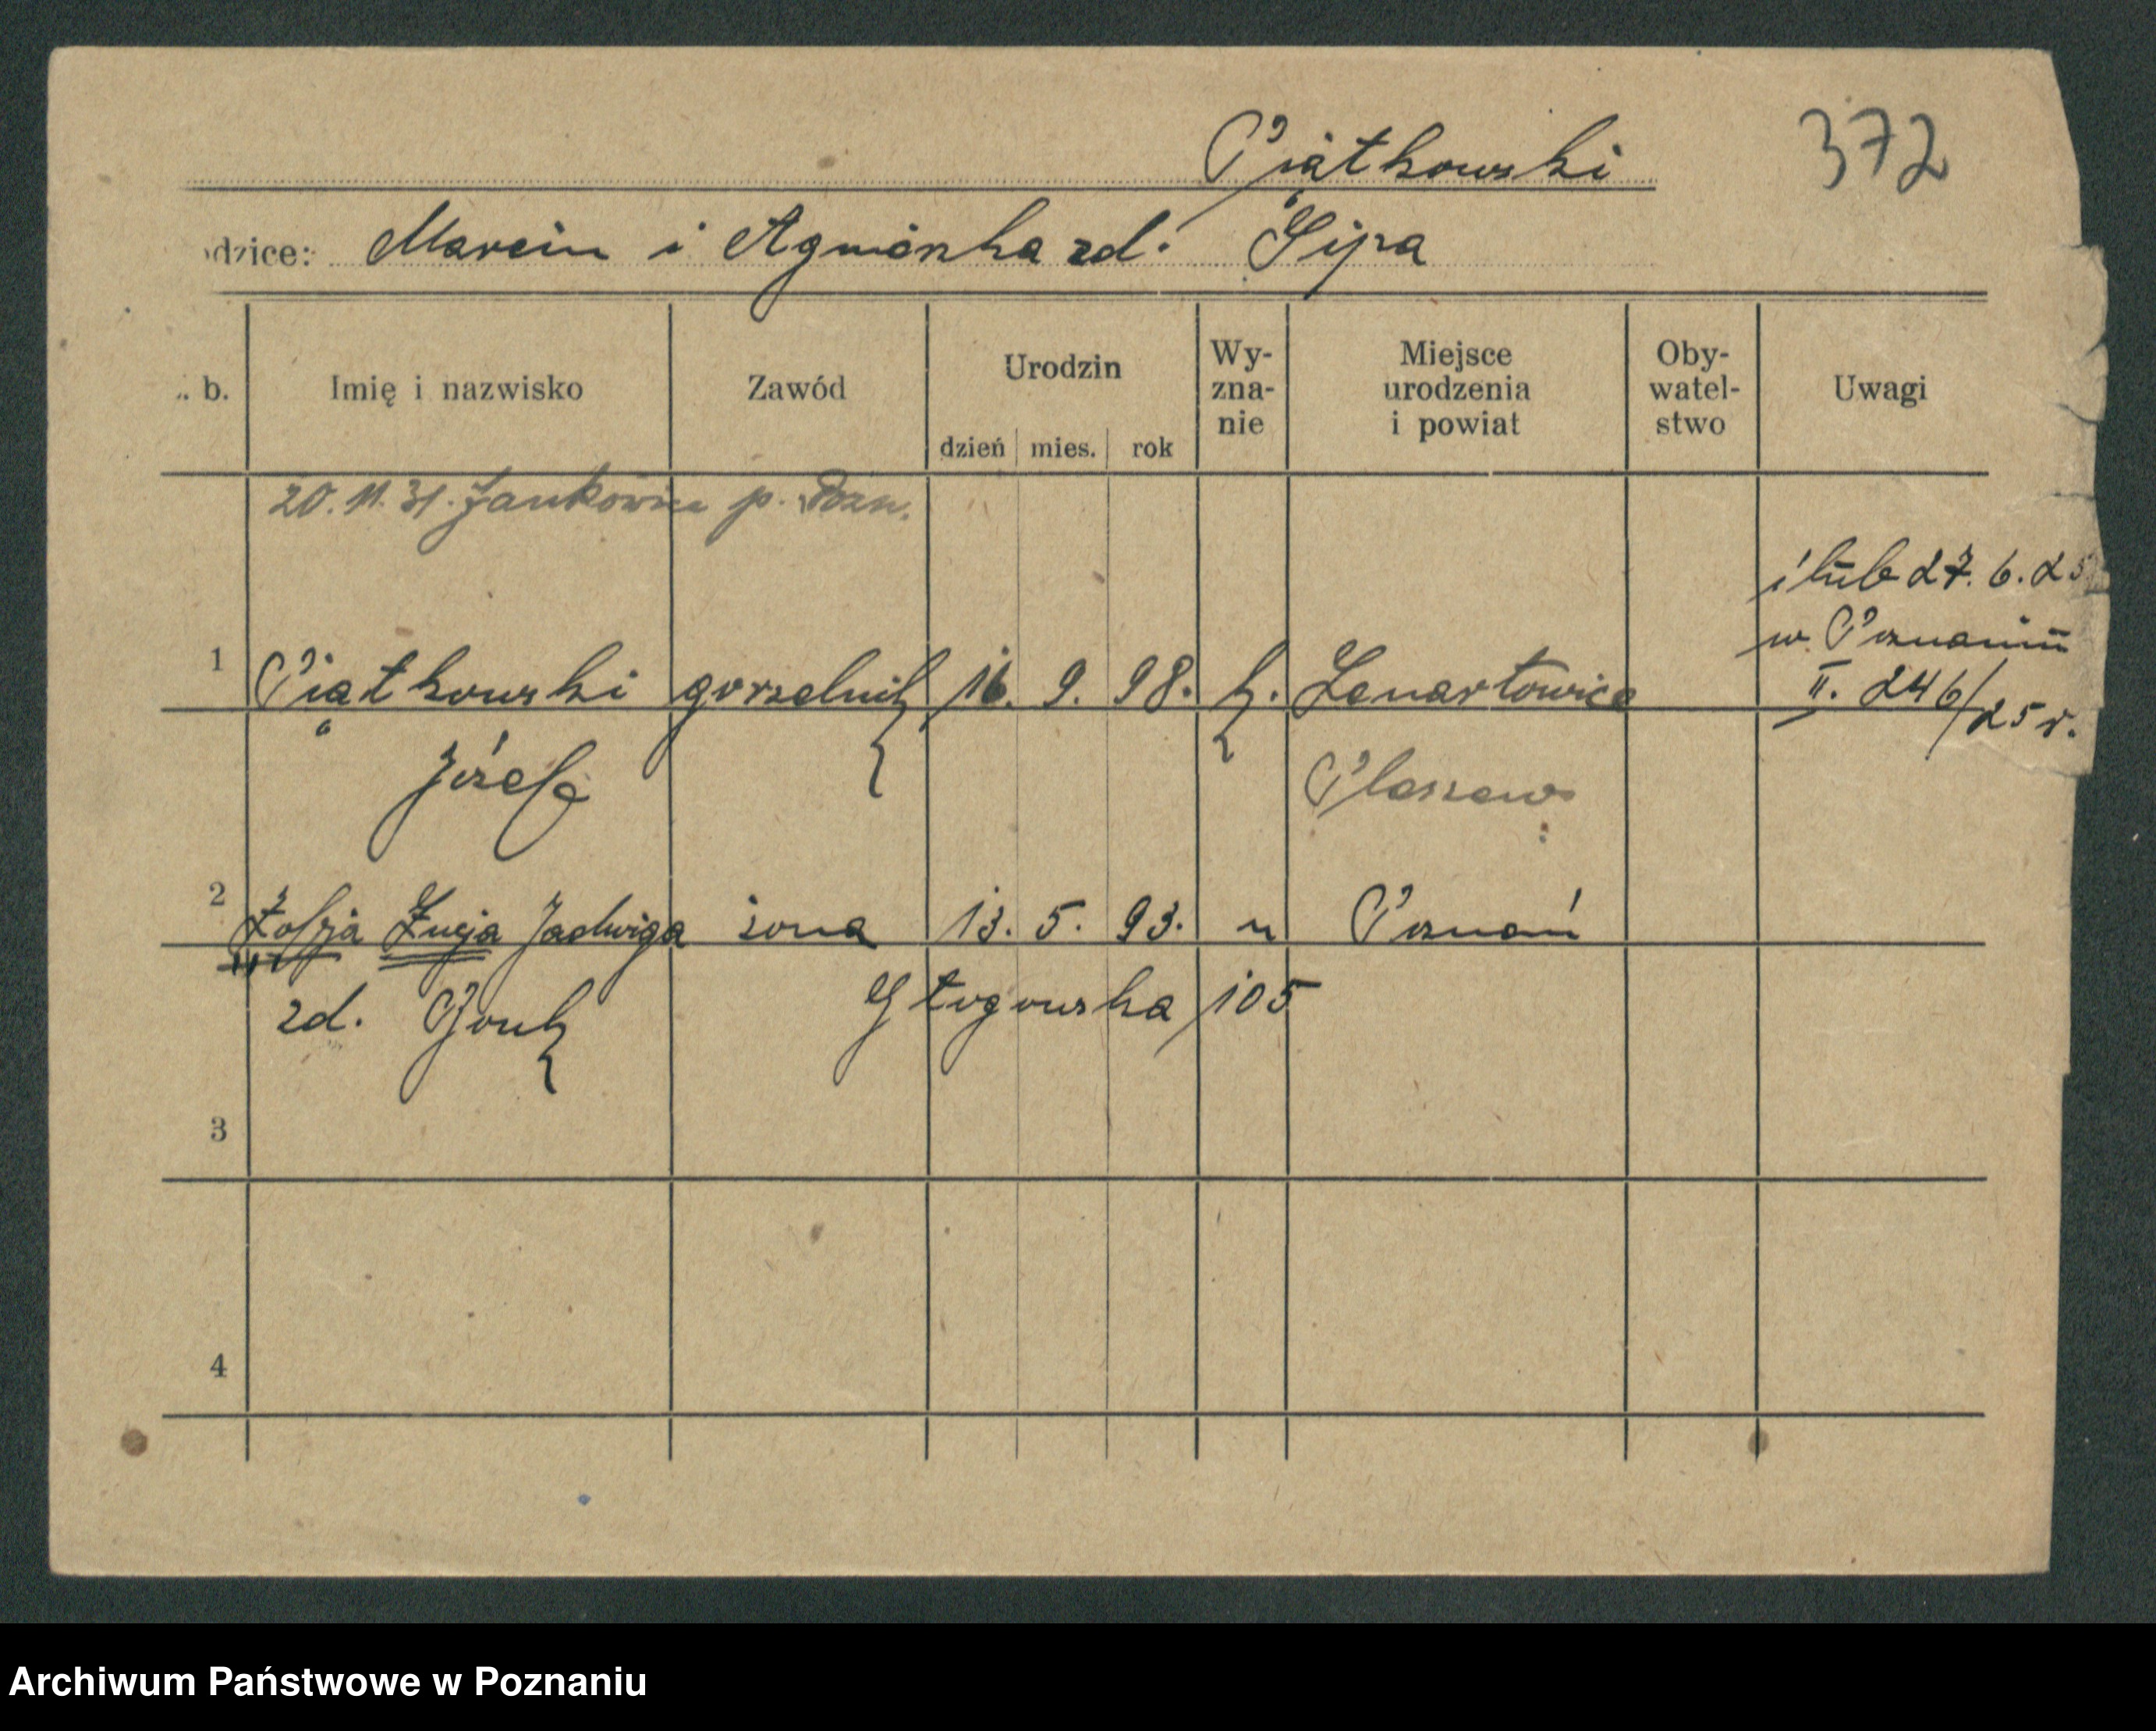 Piątkowski 372
odzice: Marcin i Agnieszka zd. Sipa
b. Imię i nazwisko Zawód Urodzin dzień mies. rok Wy-zna-nie Miejsce urodzenia i powiat Oby-watel-stwo Uwagi
20.11.31. p. Pozn.
ślub 27.6.25
w Poznaniu
II. 246/25 r.
1 Piątkowski gorzelnik 16. 9. 98. k. Lenartowice
Józef Pleszew
2 Zofja Łucja Jadwiga żona 13. 5. 93. " Poznań
zd. Bonk Głogowska 105
3
4
Archiwum Państwowe w Poznaniu